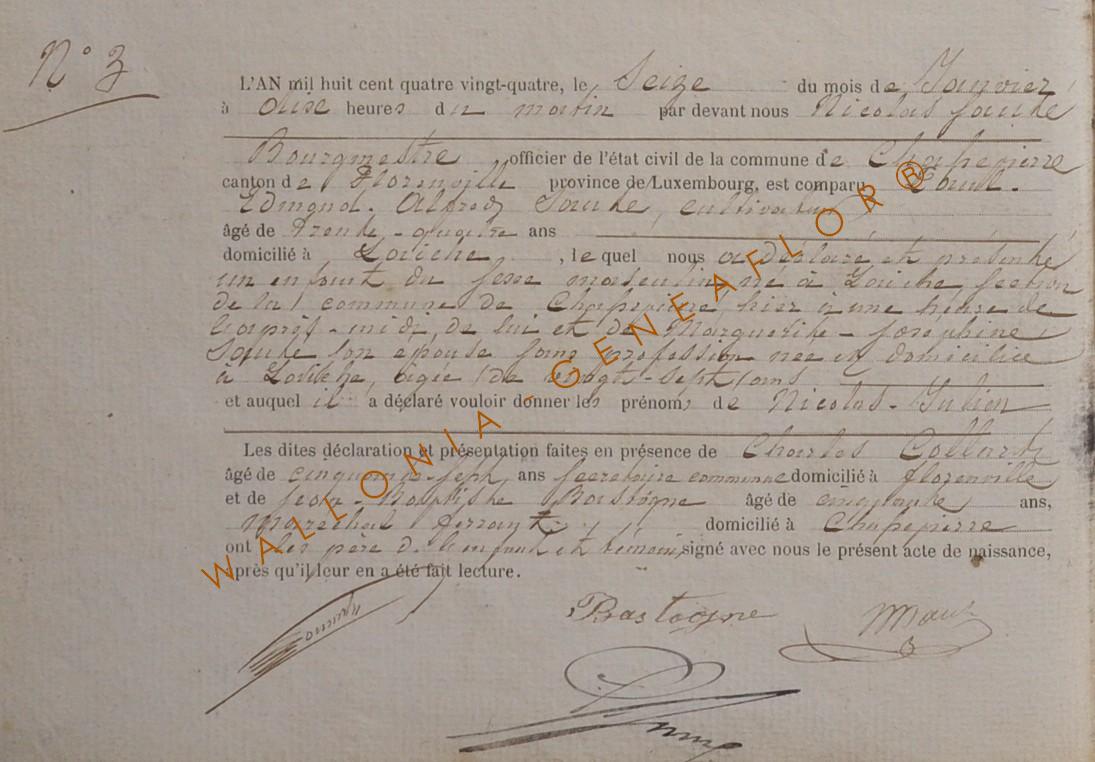 N° 3
L'AN mil huit cent quatre vingt-quatre, le Seize du mois de Janvier
à onze heures du matin par devant nous Nicolas
Bourgmestre officier de l'état civil de la commune de Chassepierre
canton de Florenville province de Luxembourg, est comparu Louis
Edmond Alfred cultivateur
âgé de Trente-quatre ans
domicilié à Laiche, le quel nous a déclaré et présenté
un enfant du sexe masculin né à Laiche section
de la commune de Chassepierre, hier à une heure de
l'après-midi, de lui et de Marguerite-Joséphine
son épouse sans profession née et domiciliée
à Laiche, âgée de vingt-sept ans
et auquel il a déclaré vouloir donner les prénoms de Nicolas-Julien
Les dites déclaration et présentation faites en présence de Charles Collard
âgé de cinquante-sept ans secrétaire communal domicilié à Florenville
et de Jean-Baptiste Bastogne âgé de cinquante ans,
Maréchal ferrant domicilié à Chassepierre
ont les père de l'enfant et témoins signé avec nous le présent acte de naissance,
après qu'il leur en a été fait lecture.
Bastogne
WALLONIA-GENEAFLOR®